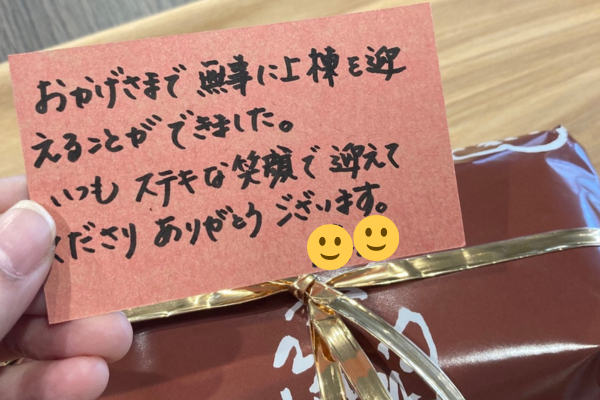 おかげさまで 無事に上棟を迎
えることが できました。
いつも ステキな笑顔で 迎えて
くださり ありがとう ございます。